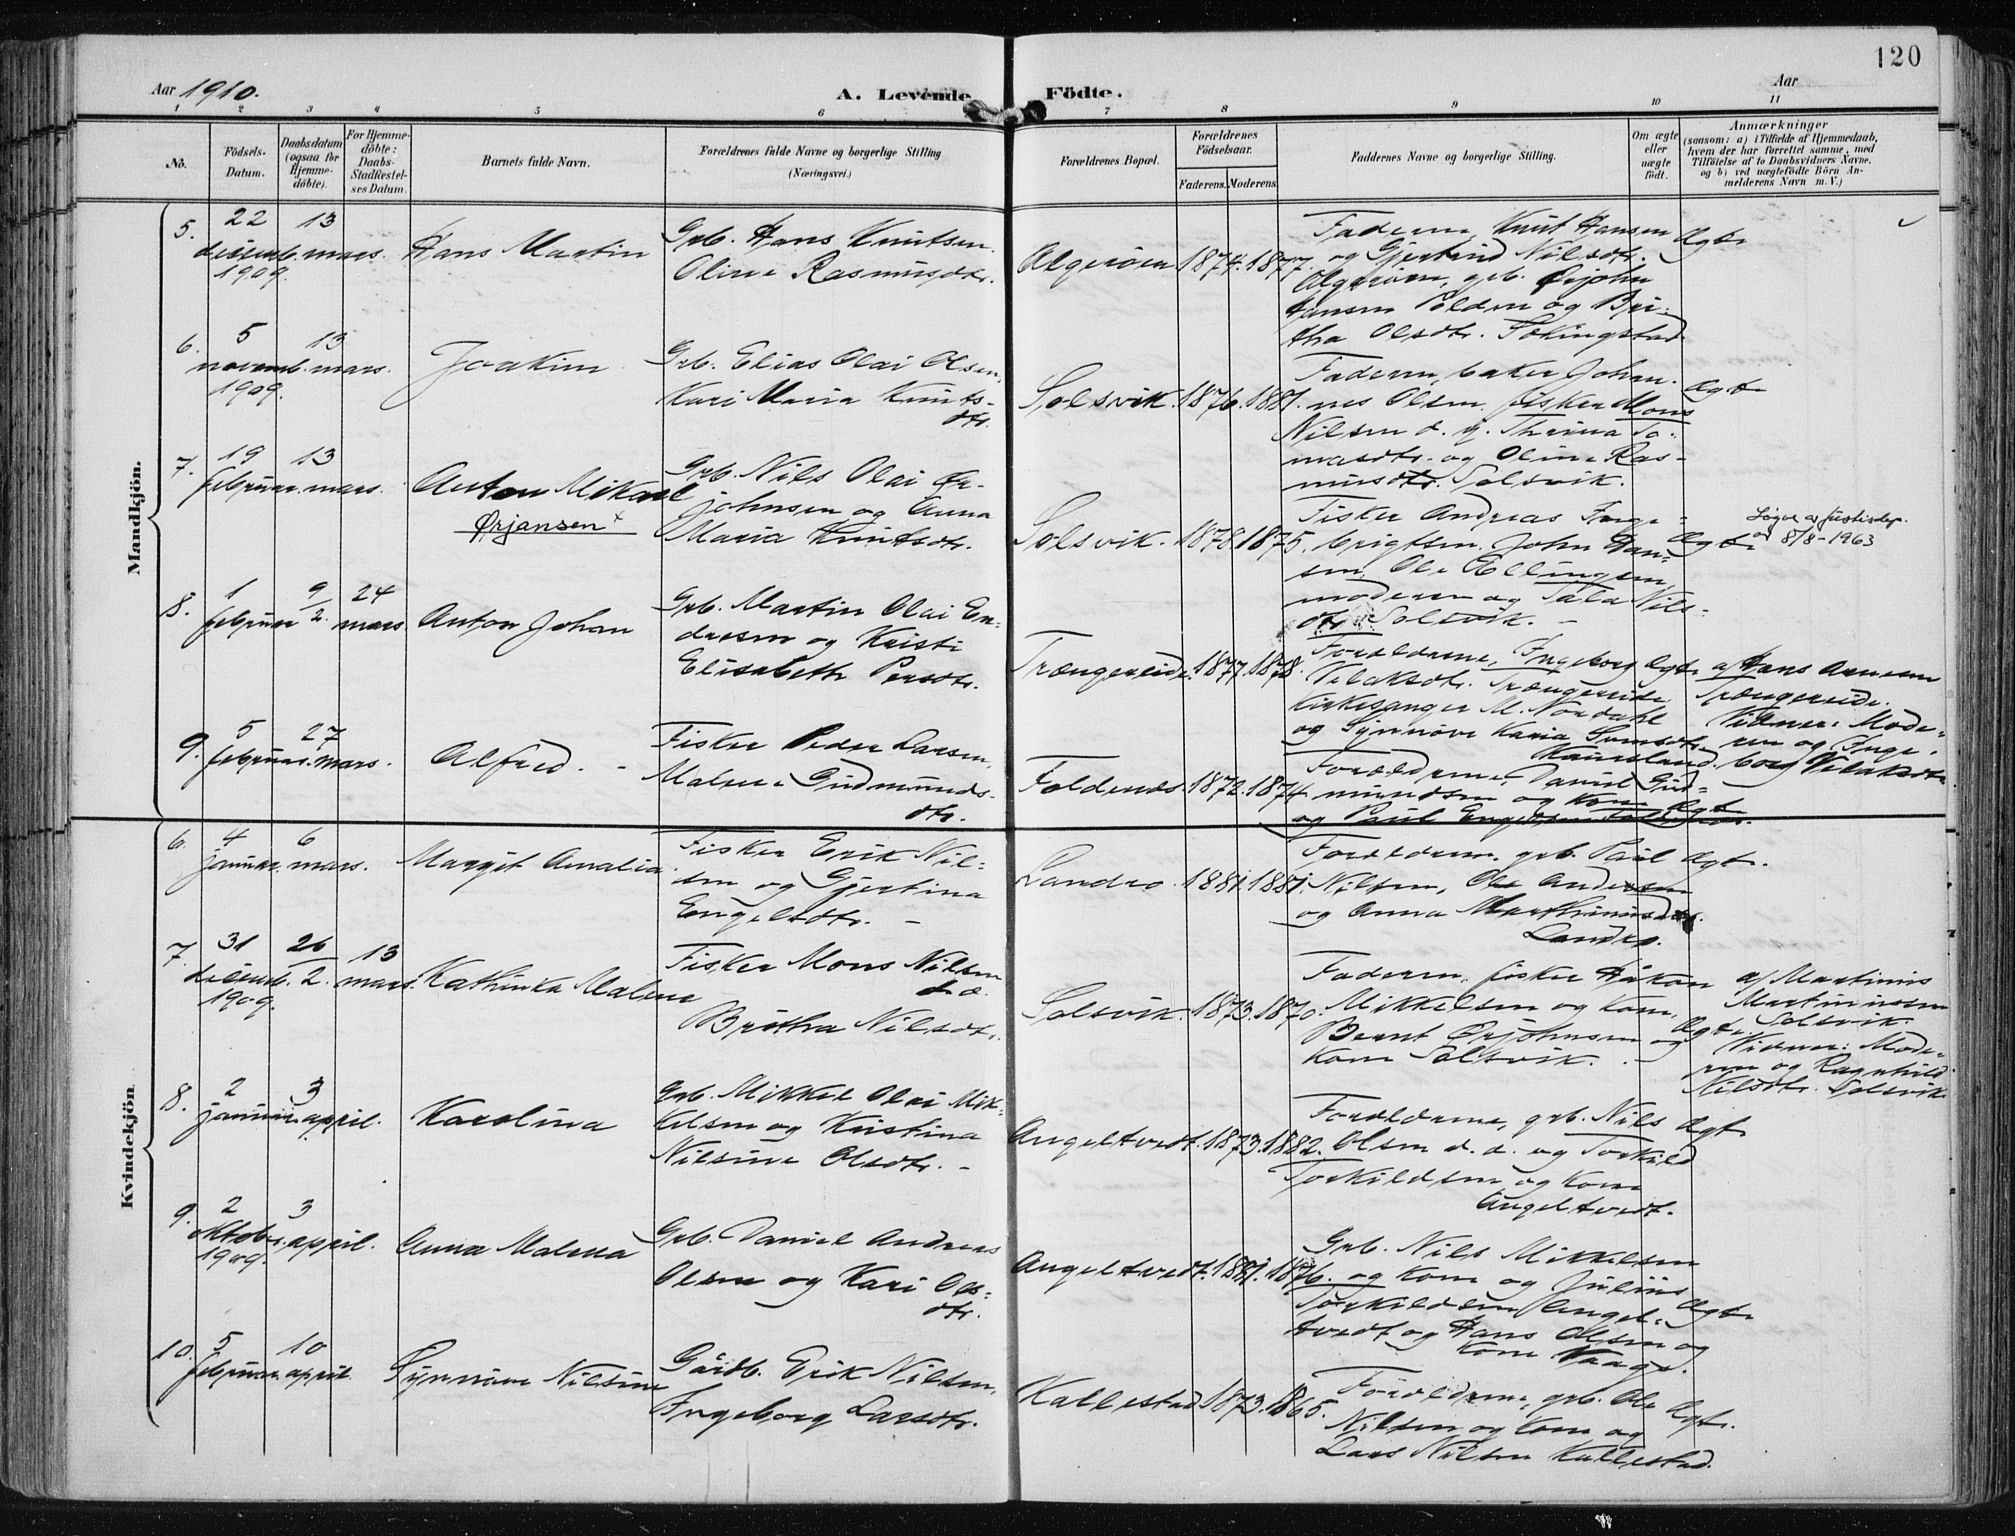 120
Aar 1910.
A. Levende
Födte.
Aar
1 2 3 4 5 6 7 8 9 10 11
No.
Födsels-
Datum.
Daabsdatum
(ogsaa for
Hjemme-
döbte).
For Hjemme-
döbte:
Daabs-
Stadfæstel-
ses Datum.
Barnets fulde Navn.
Forældrenes fulde Navne og borgerlige Stilling
(Næringsvei.)
Forældrenes Bopæl.
Forældrenes
Födselsaar.
Faderens. Moderens.
Faddernes Navne og borgerlige Stilling.
Om ægte
eller
uægte
födt.
Anmærkninger
(saasom: a) i Tilfælde af Hjemmedaab,
hvem der har forrettet samme, med
Tilföielse af to Daabsvidners Navne.
og b) ved uægtefödte Börn An-
melderens Navn m. V.)
Mandkjön.
5.
22
desemb.
1909.
13
mars.
Hans Martin
Grb. Hans Knutsen.
Oline Rasmusdtr.
Algerøen 1874. 1877.
Faderen, Knut Hansen
og Gjertrud Nilsdtr.
Algerøen, grb. Ørjohn
Hansen Polden og Bri-
tha Olsdtr. Tokingstad
Ægte
6.
5
novemb.
1909.
13
mars.
Joakim
Grb. Elias Olai Olsen,
Kari Maria Knuts-
dtr.
Solsvik. 1876. 1881.
Faderen, baker Johan-
nes Olsen, fisker Mons
Nilsen d. y. Thrina To-
masdtr. og Oline Ras-
musdtr. Solsvik.
Ægte
7.
19
februar
13
mars.
Anton Mikael
Ørjansen x
Grb. Nils Olai Ør-
johnsen og Anna
Maria Knutsdtr.
Solsvik. 1878. 1875.
Fisker Andreas Inge-
brigtsen, John Han-
sen, Ole Ellingsen,
moderen og Tala Nils-
dtr. Solsvik. -
Ægte
8/8-1963
8.
1
februar
9
2.
24
mars.
Anton Johan
Grb. Martin Olai En-
dresen og Kristi
Elisabeth Persdtr.
Trængereide. 1877. 1878.
Forældrene, Ingeborg
Velaksdtr. Trængereide
Kirkesanger M. Nordahl
og Synnøve Karia Simsdtr.
Ægte
af Hans Arnesen
Trængereide.
Vidner: Mode-
ren og Inge-
borg Velaksdtr
9.
5
februar.
27
mars.
Alfred. -
Fisker Peder Larsen,
Malene Gudmunds-
dtr.
Foldenes. 1872. 1874.
Forældrene, Daniel Gud-
mundsen og Kone
og Paul
Ægte
Kvindekjön
6.
4
januar.
6
mars.
Margit Amalia.
Fisker Erik Nil-
sen og Gjertina
Engelsdtr. -
Landro. 1881. 1881.
Forældrene, grb. Paul
Nilsen, Ole Andersen
og Anna Marthinusdtr.
Landro.
Ægte.
7.
31
desemb.
1909.
26
2.
13
mars.
Kathinka Malene
Fisker Mons Nilsen
d. æ.
Britha Nilsdtr.
Solsvik. 1873. 1870.
Faderen, fisker Håkon
Mikkelsen og Kone,
Bernt Ørjohnsen og
Kone Solsvik. -
Ægte.
af Martinus
Martinussen
Solsvik.
Vidner: Mode-
ren og Ragnhild
Nilsdtr. Solsvik.
8.
2
januar.
3
april.
Karolina
Grb. Mikkel Olai Mik-
kelsen og Kristina
Nilsine Olsdtr. -
Angeltvedt. 1873. 1882.
Forældrene, grb. Nils
Olsen d. d. og Torkild
Torkildsen og Kone
Angeltvedt.
Ægte
9.
2
oktober.
1909.
3
april.
Anna Malena
Grb. Daniel Andreas
Olsen og Kari Ols-
dtr.
Angeltvedt. 1881. 1876.
Grb. Nils Mikkelsen
og Kone og Julius
Torkildsen Angel-
tvedt og Hans Olsen og
Kone Vaage.
Ægte
10.
5
februar.
10
april.
Synnøve Nilsine
Gårdb. Erik Nilsen,
Ingeborg Larsdtr.
Kallestad 1873. 1865.
Forældrene, grb. Ole
Nilsen og Kone og
Lars Nilsen Kallestad.
Ægte.